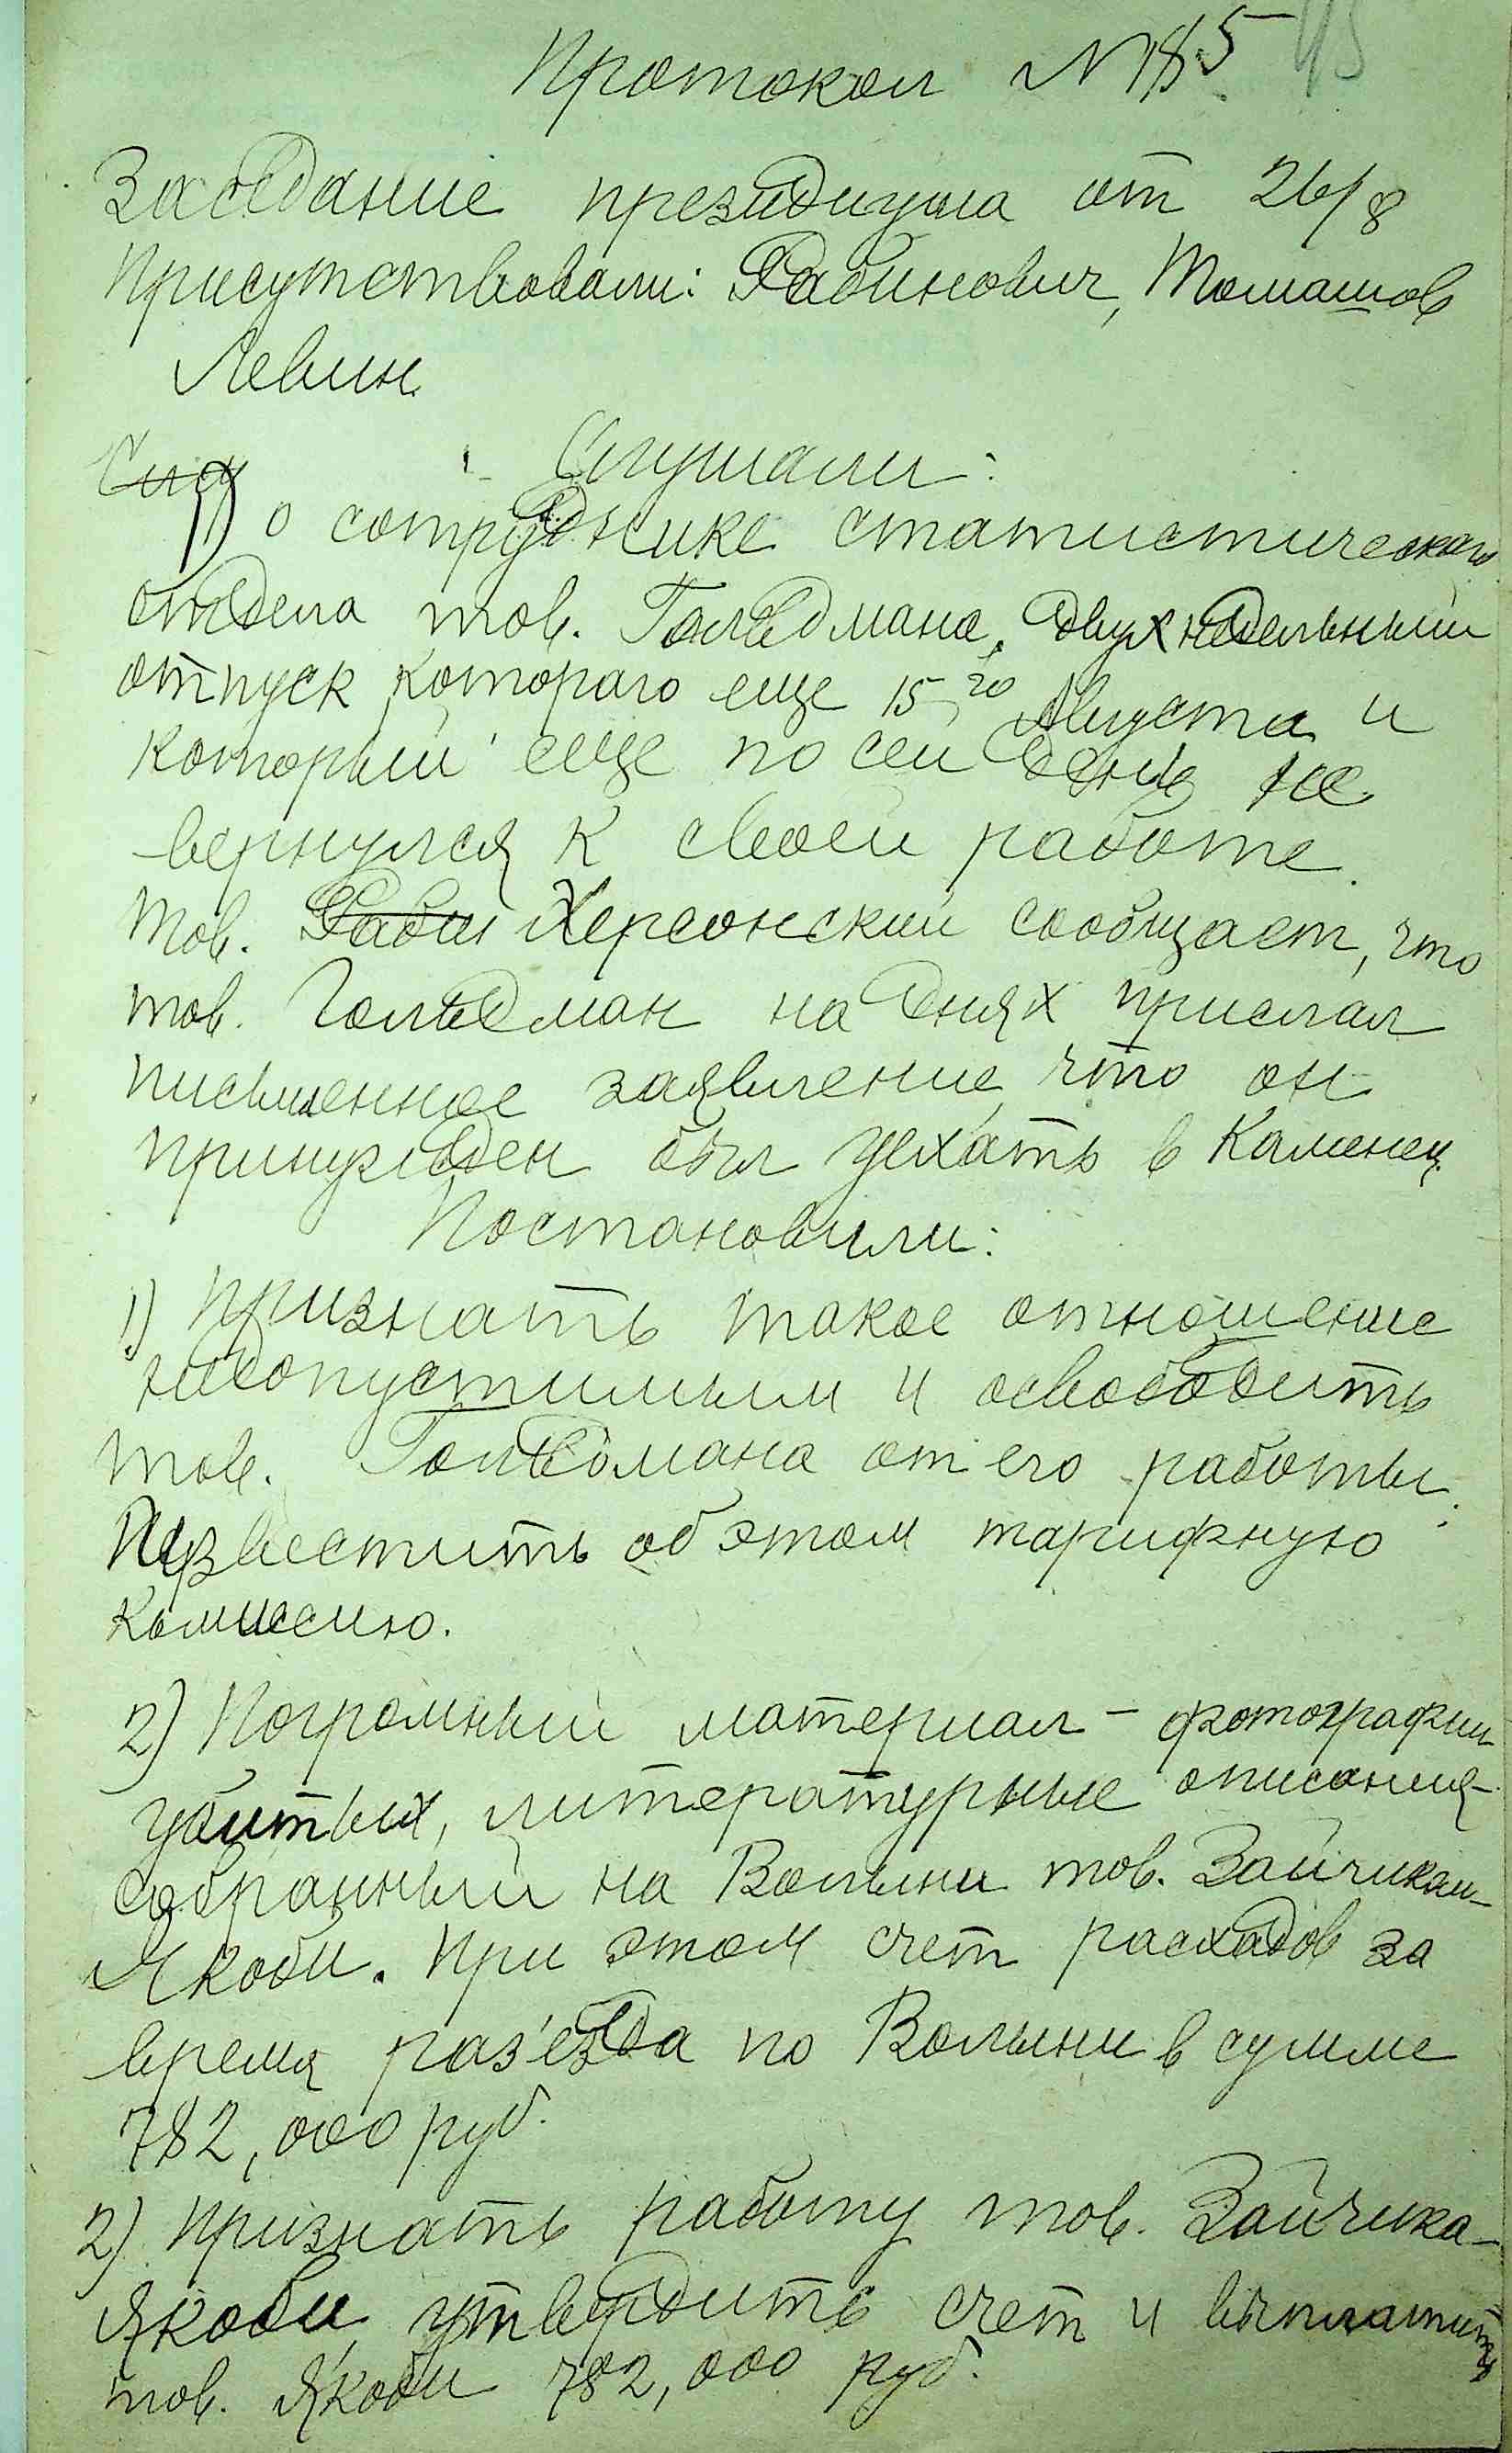 Протокол №85
Заседание президиума от 26/8
Присутствовали: Рабинович, Томашов
Левин
Слу Слушали:
1) о сотруднике статистическаго
отдела тов. Гольдмана, двухнедельный
отпуск котораго еще 15-20 Августа и
который еще по сей день не
вернулся к своей работе.
Тов. Раби Херсонский сообщает, что
тов. Гольдман на днях прислал
письменное заявление, что он
принужден был уехать в Каменец
Постановили:
1) Признать такое отношение
недопустимым и освободить
тов. Гольдмана от его работы.
Известить об этом тарифную
комиссию.
2) Погромный материал – фотографии
убитых, литературные описания–
собранный на Волыни тов. Зайчиком–
Якоби. При этом счет расходов за
время раз'езда по Волыни в сумме
782,000 руб.
2) Признать работу тов. Зайчика–
Якоби, утвердить счет и выплатить
тов. Якоби 782,000 руб.